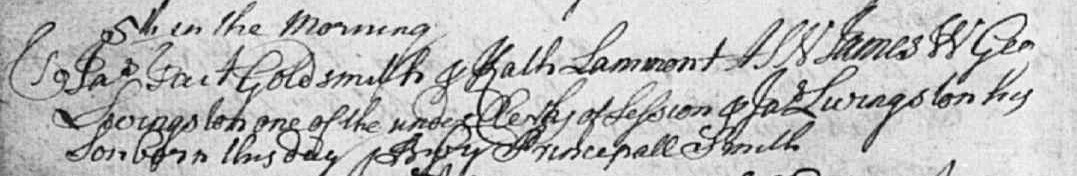 5th in the Morning
(59 Jas Tait Goldsmith & Kath Lammont A S N James W Geo
Livingston one of the under Clerks of Session & Jas Livingston his
Son born this day Principall Smith